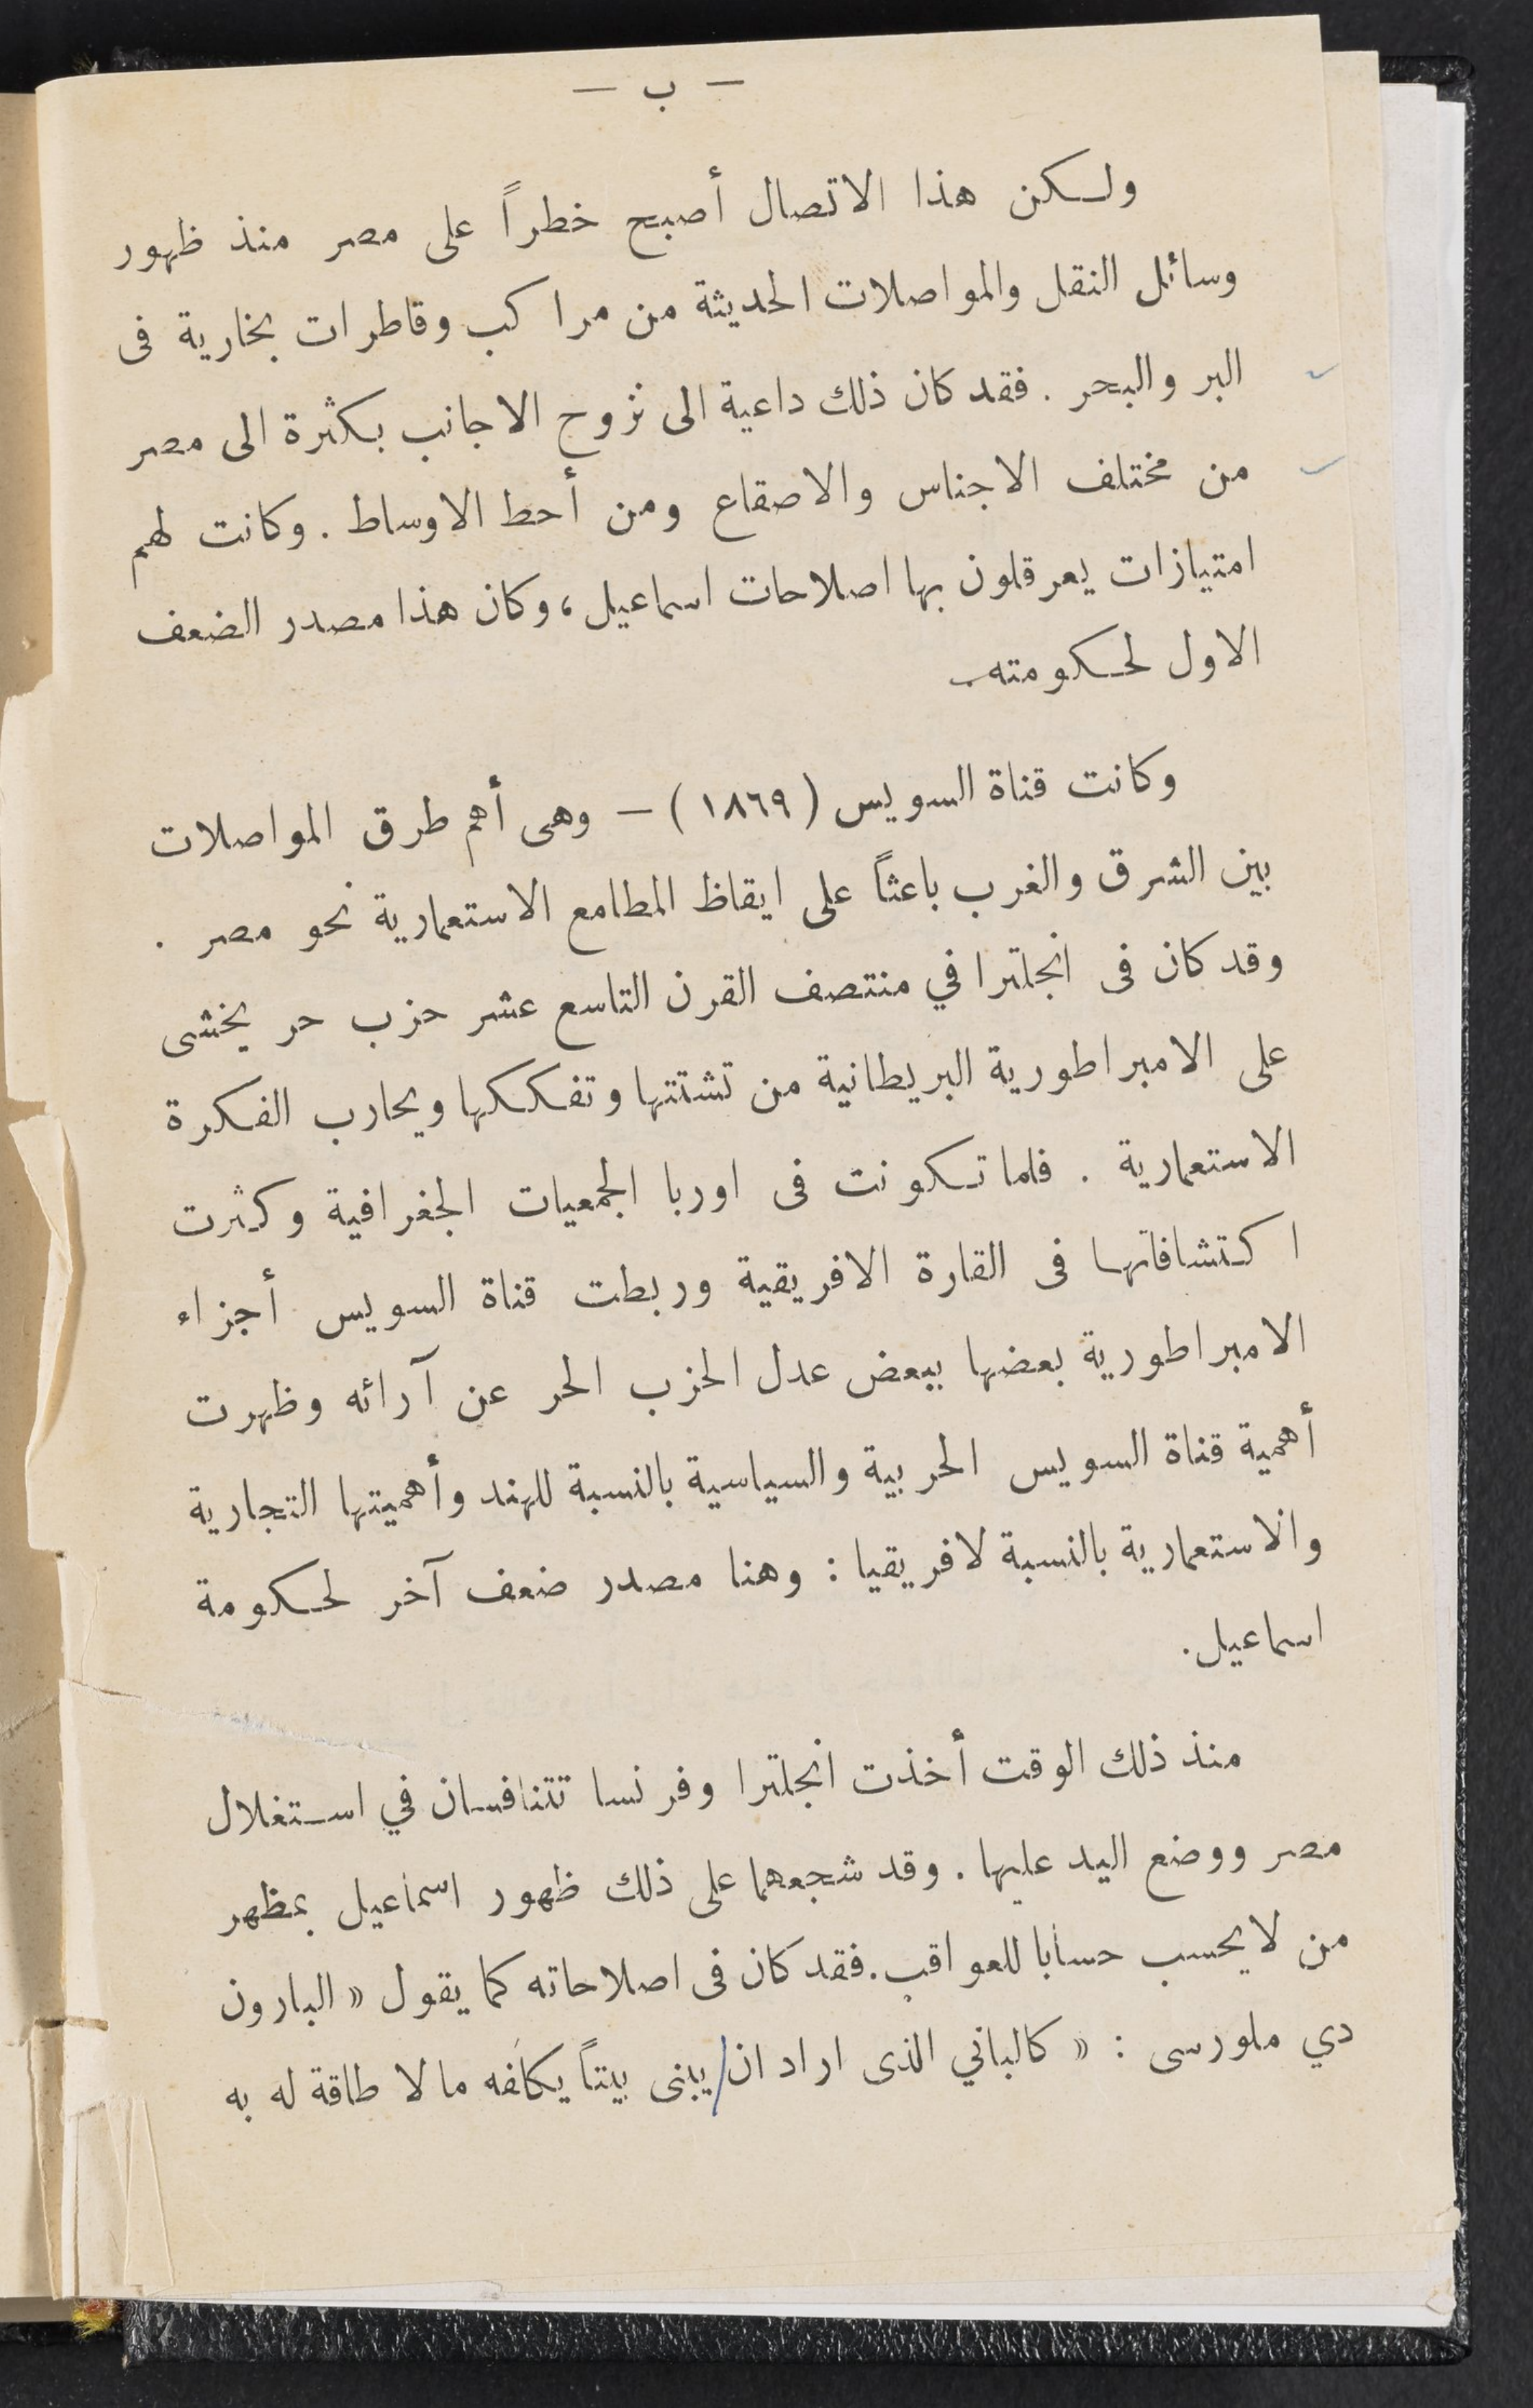 — ب —
ولكن هذا الاتصال أصبح خطراً على مصر منذ ظهور
وسائل النقل والمواصلات الحديثة من مراكب وقاطرات بخارية فى
البر والبحر . فقد كان ذلك داعية الى نزوح الاجانب بكثرة الى مصر
من مختلف الاجناس والاصقاع ومن أحط الاوساط . وكانت لهم
امتيازات يعرقلون بها اصلاحات اسماعيل ، وكان هذا مصدر الضعف
الاول لحكومته .
وكانت قناة السويس ( ١٨٦٩ ) — وهى أهم طرق المواصلات
بين الشرق والغرب باعثاً على ايقاظ المطامع الاستعمارية نحو مصر .
وقد كان فى انجلترا في منتصف القرن التاسع عشر حزب حر يخشى
على الامبراطورية البريطانية من تشتتها وتفككها ويحارب الفكرة
الاستعمارية . فلما تكونت فى اوربا الجمعيات الجغرافية وكثرت
اكتشافاتها فى القارة الافريقية وربطت قناة السويس أجزاء
الامبراطورية بعضها ببعض عدل الحزب الحر عن آرائه وظهرت
أهمية قناة السويس الحربية والسياسية بالنسبة للهند وأهميتها التجارية
والاستعمارية بالنسبة لافريقيا : وهنا مصدر ضعف آخر لحكومة
اسماعيل .
منذ ذلك الوقت أخذت انجلترا وفرنسا تتنافسان في استغلال
مصر ووضع اليد عليها . وقد شجعهما على ذلك ظهور اسماعيل بمظهر
من لا يحسب حسابا للعواقب . فقد كان فى اصلاحاته كما يقول « البارون
دي ملورسى : « كالباني الذى اراد ان/يبنى بيتاً يكلفه ما لا طاقة له به